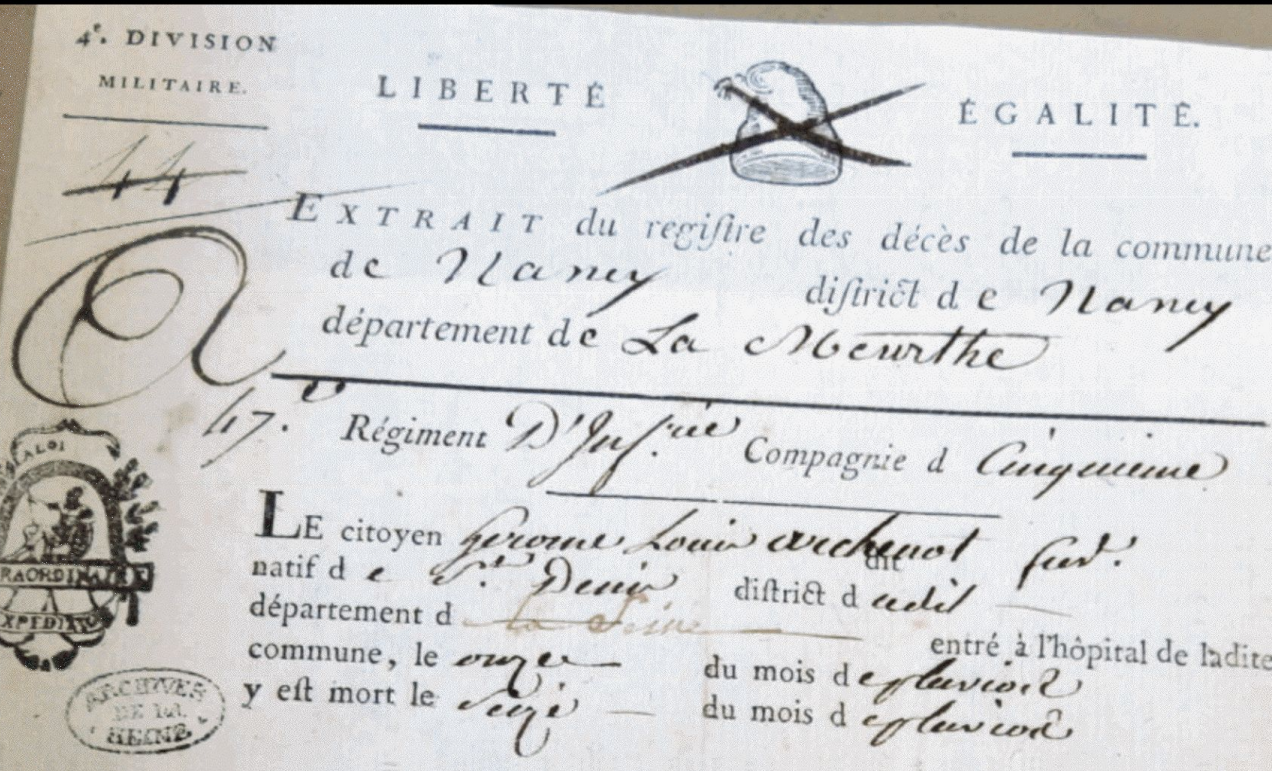 4e. DIVISION
MILITAIRE.
LIBERTÉ
ÉGALITÉ.
44
EXTRAIT du regiſtre des décès de la commune
de Nancy diſtrict de Nancy
département de La Meurthe
47.e Régiment D'Inf.rie Compagnie d Cinquieme
LE citoyen Gerome Louis archenot fus.r
dit
natif de St. Denis diſtrict d udit
département d la Seine
entré à l'hôpital de ladite
commune, le onze du mois de pluviose
y eſt mort le Seize du mois de pluviose
LA LOI
RAORDINAIRE
EXPEDITION
ARCHIVES
DE LA
SEINE